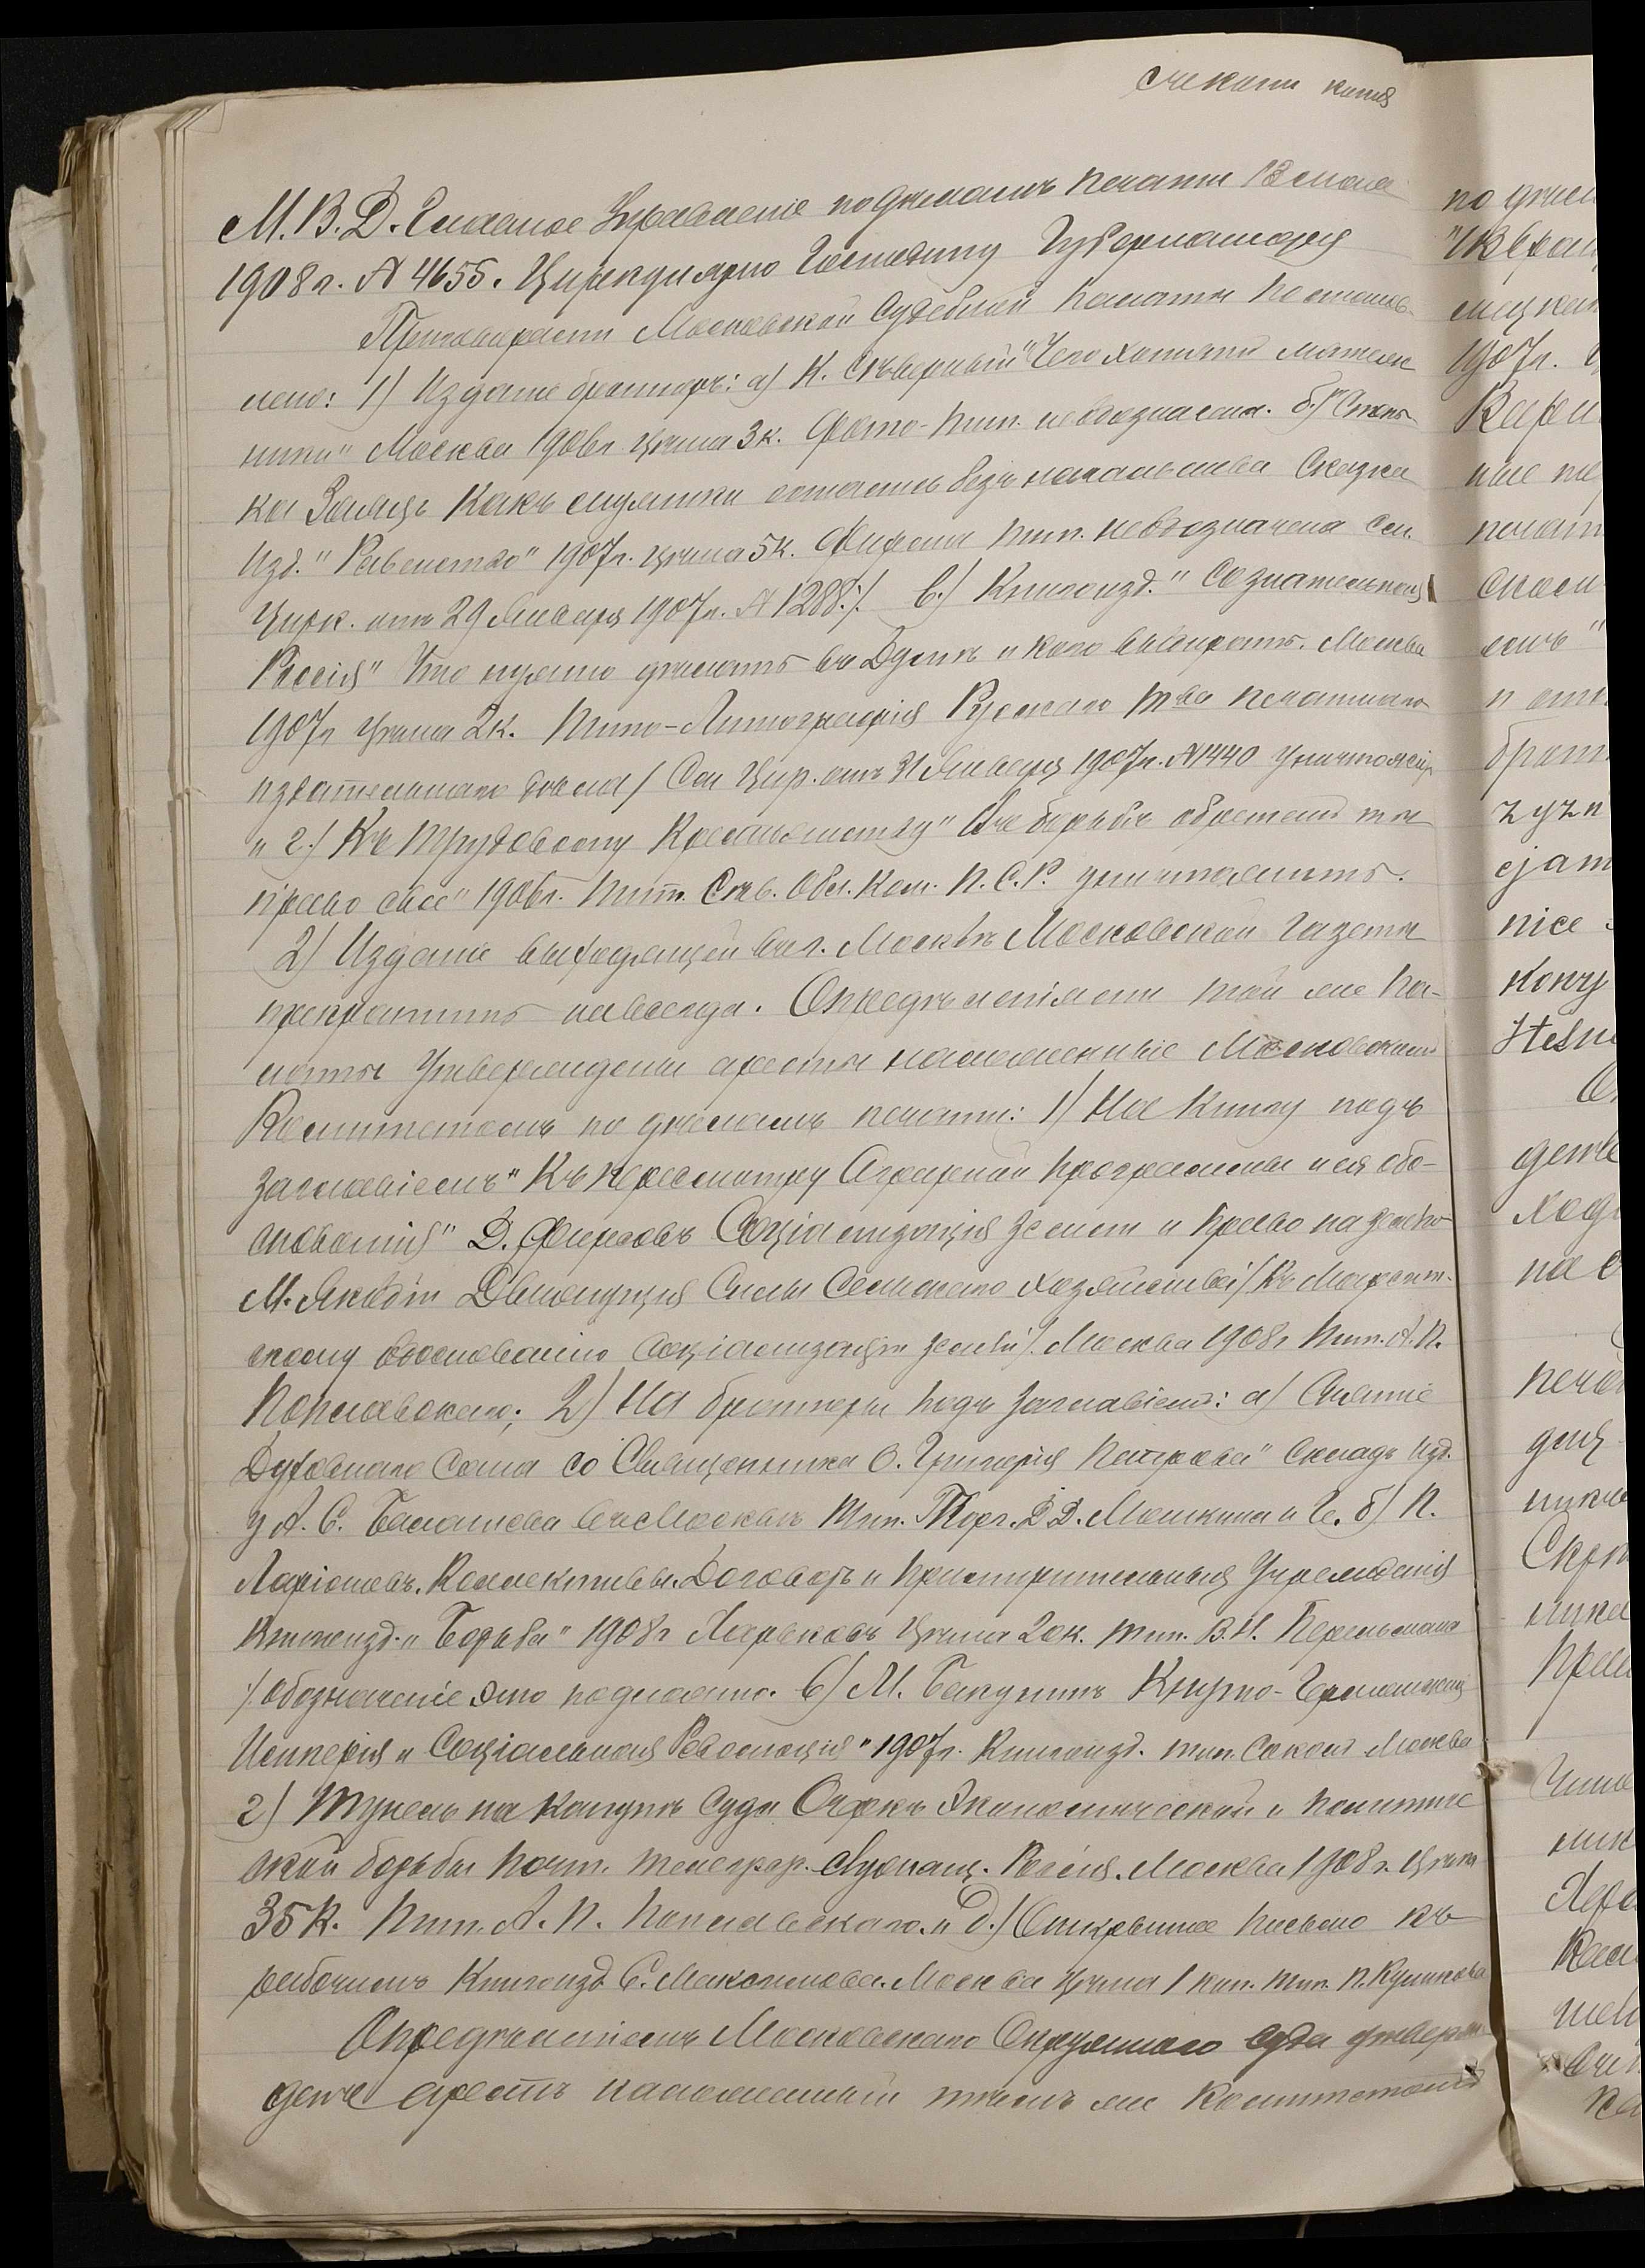 копія
М.В.Д. Главное Управленіе по дѣламъ печати 13 мая
1908 г. № 4655. Циркулярно Господину Губернатору
Приговорами Московской Судебной Палаты постанов-
лено: 1) Изданіе брошюръ: а) Н. Сѣверный "Чего хотятъ
Москва 1906 г. цѣна 3 к. тип. не обозначена. б)
Заяцъ Какъ остались безъ начальства Сказка
Изд. "Равенство" 1907 г. цѣна 5 к. Фирма тип. не обозначена См.
Цирк. отъ 29 Января 1907 г. № 1288 /. в) Книгоизд. "Сознательная
Россія" Что нужно дѣлать въ Думѣ и кого выбирать. Москва
1907 г цѣна 2 к. Типо-Литографія Русскаго Т-ва печатнаго
издательскаго дѣла / См Цир. отъ 31 Января 1907 г. № 1440
и г) Къ Трудовому Крестьянству" Въ борьбѣ обретешь ты
право свое" 1906 г. тип. Обл. Ком. П. С. Р. уничтожить.
2) Изданіе выходящей въ г. Москвѣ Московской газеты
прекратить навсегда. Опредѣленіями той же Па-
латы утверждены аресты наложенные Московскимъ
Комитетомъ по дѣламъ печати: 1) На книгу подъ
заглавіемъ "Къ пересмотру Аграрной программы и ея обо-
снованія" Д. Фирсовъ Соціализація земли и право на землю
М. Якобій Движущія Силы Сельскаго хозяйства / Къ
обоснованію соціализаціи земли /. Москва 1908 г тип. А. П.
Поплавскаго; 2) На брошюры подъ заглавіемъ: а) Снятіе
Духовнаго Сана со Священника О. Григорія Петрова" Складъ изд.
у А. С. Балашова въ Москвѣ тип. Торг. Д. Д. Мошкина и Ге. б) П.
Ларіоновъ. Коллективн. Договоръ и примирительныя Учрежденія
Книгоизд. "Борьба" 1908 г Харьковъ цѣна 20 к. тип. В. Н. Перельмана
/. обозначеніе это подложно. в) М. Бакунинъ Кнуто-Германская
Имперія и Соціальная Революція" 1907 г. Книгоизд. тип. Соколъ Москва
г) Тунель на канунѣ суда Очеркъ Экономической и политиче
ской борьбы почт. телеграф. служащ. Россіи. Москва 1908 г. цѣна
35 к. тип. А. П. Поплавскаго. и д) Открытое письмо къ
рабочимъ Книгоизд. С. Максимова. Москва цѣна 1 коп. тип. П. Куликова
Опредѣленіемъ Московскаго Окружнаго Суда утверж
денъ арестъ наложенный тѣмъ же Комитетомъ